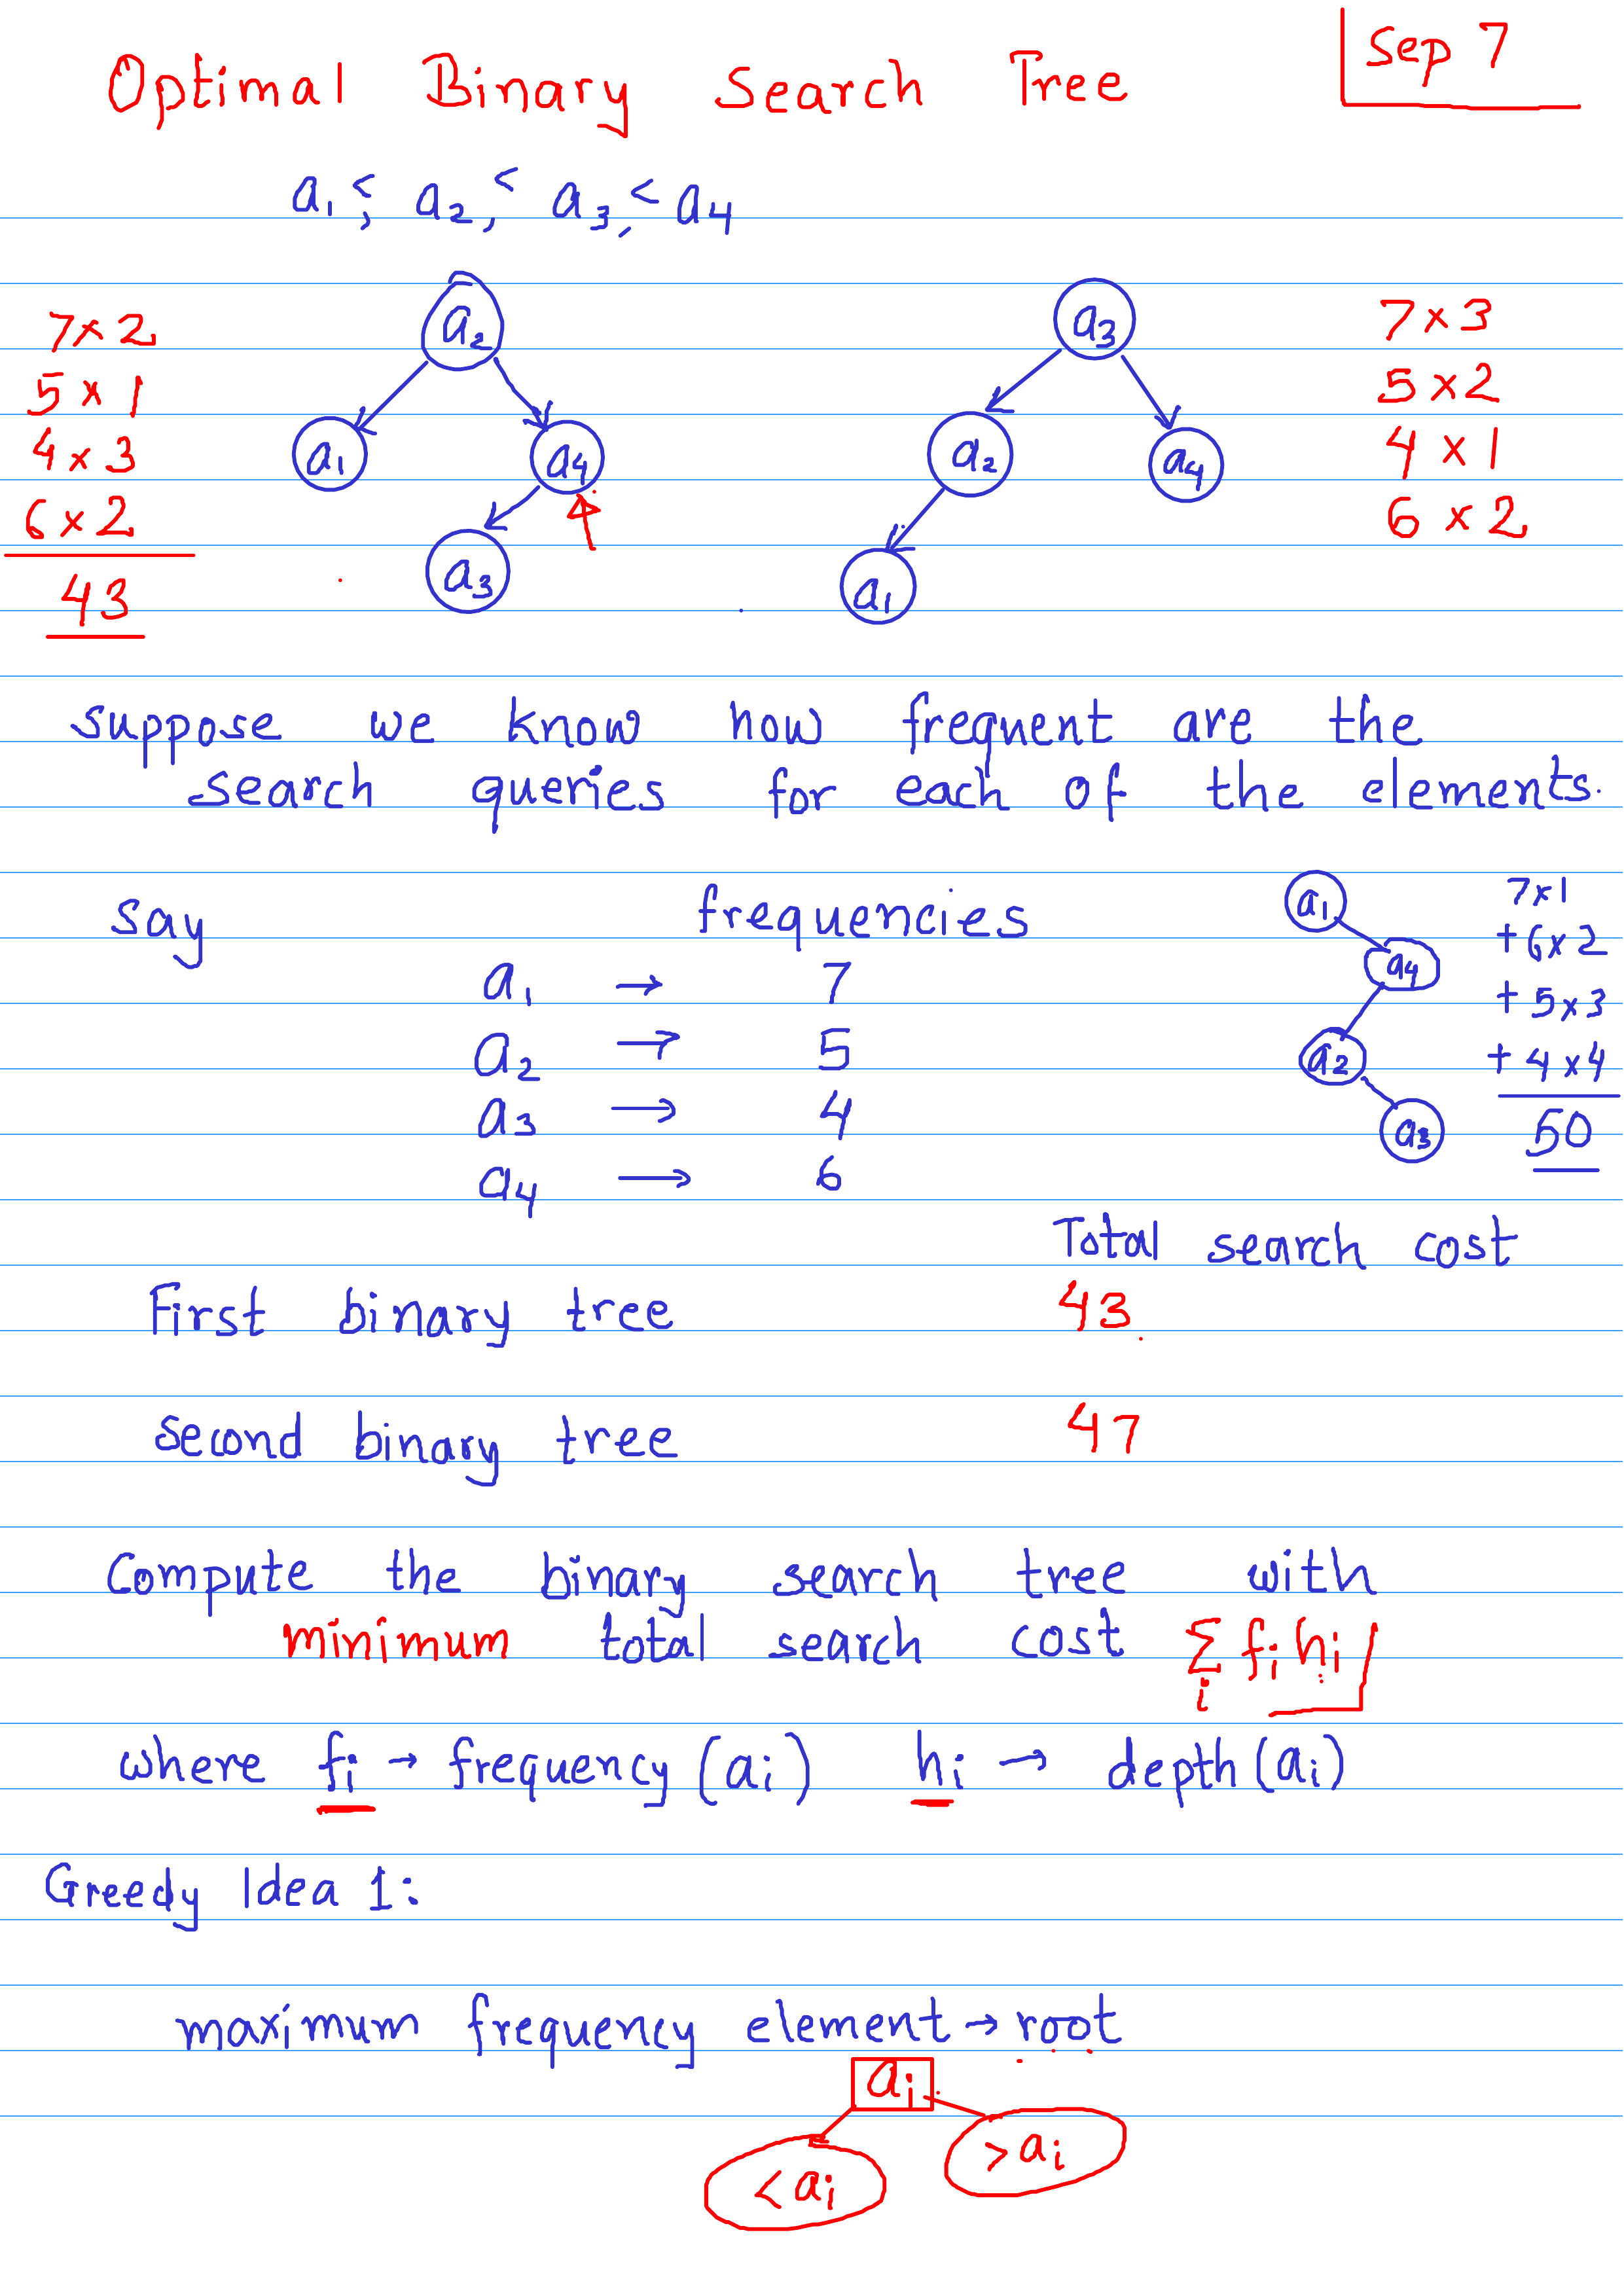 Optimal Binary Search Tree
Sep 7
a1 < , a2 , < a3 , < a4
7 × 2
5 × 1
4 × 3
6 × 2
43
a2
a1
a4
a3
a3
a2
a4
a1
7 × 3
5 × 2
4 × 1
6 × 2
suppose we know how frequent are the
search queries for each of the elements.
say frequencies
a1 → 7
a2 → 5
a3 → 4
a4 → 6
a1
a4
a2
a3
7×1
+ 6×2
+ 5×3
+ 4×4
50
Total search cost
First binary tree 43
second binary tree 47
Compute the binary search tree with
minimum total search cost ∑i fi hi
where fi → frequency (ai) hi → depth (ai)
Greedy Idea 1:
maximum frequency element → root
ai
< ai
> ai